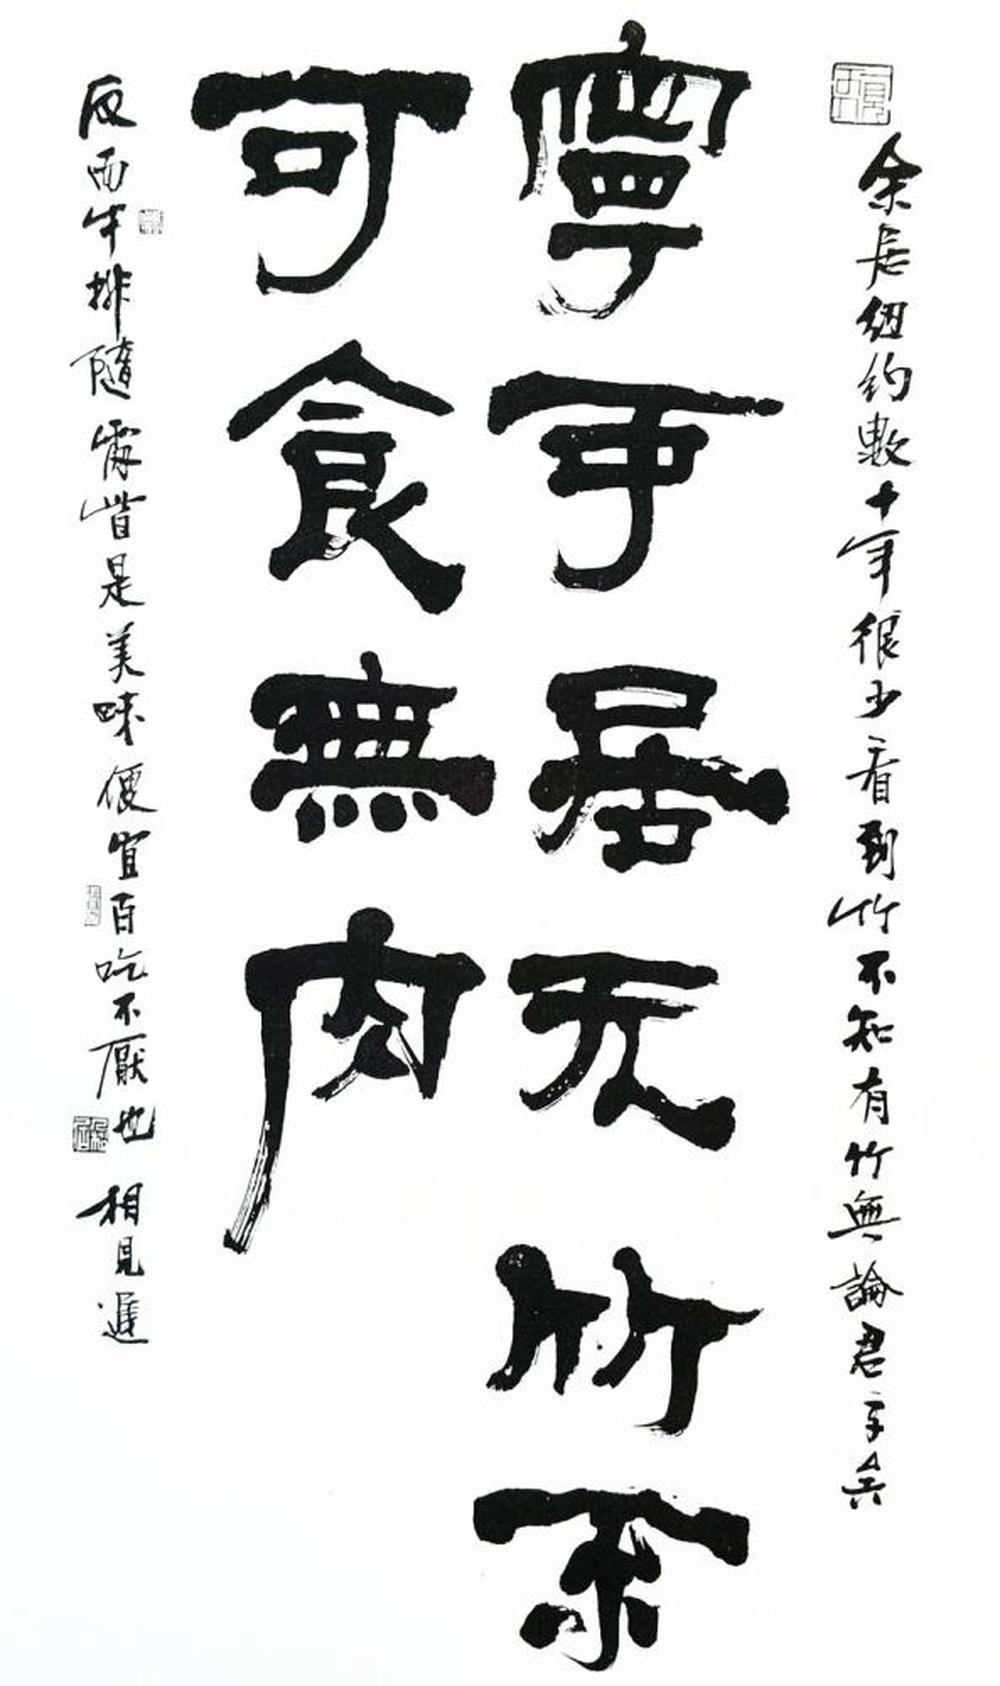 余居纽约數十年很少看到竹不知有竹無論君子矣
寧可居无竹不
可食無肉
反而牛排隨處皆是美味便宜百吃不厭也 相見遲